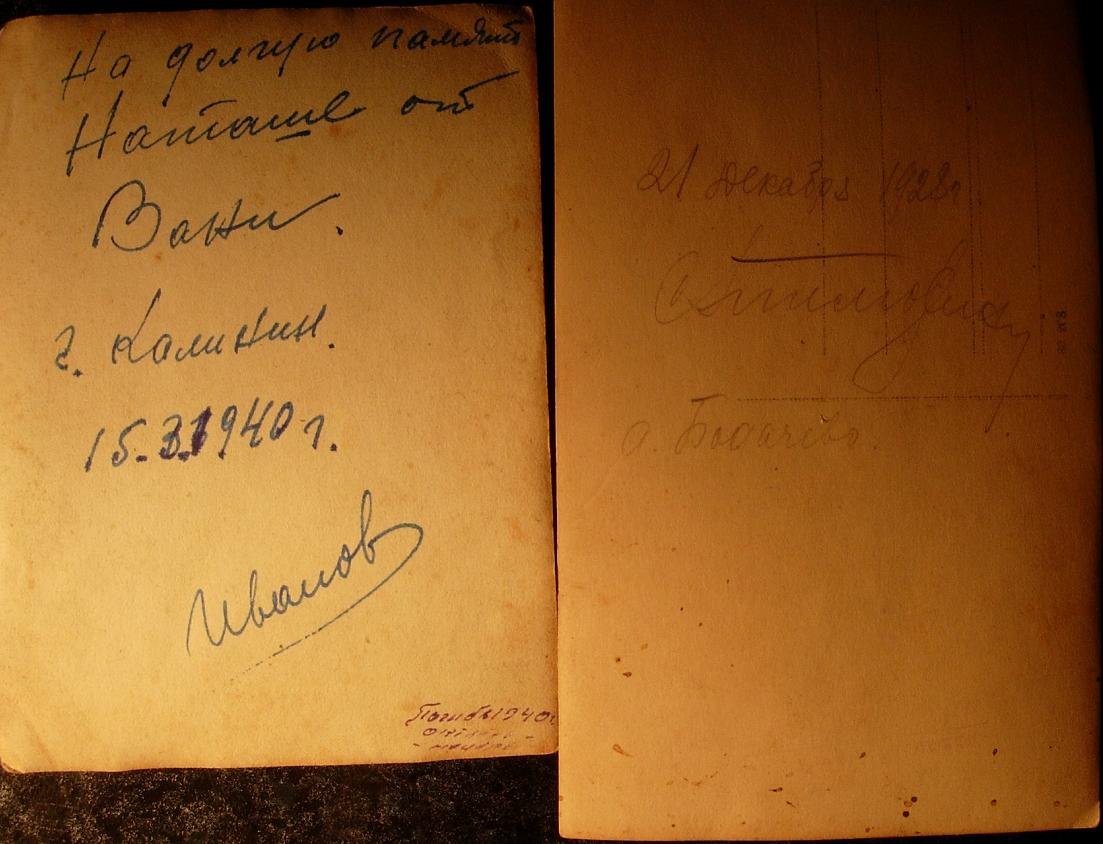 На долгую память
Наташе от
Вани.
г. Калинин.
15.3.1940 г.
Иванов
Погиб в 1940г.
21 декабря 1928г